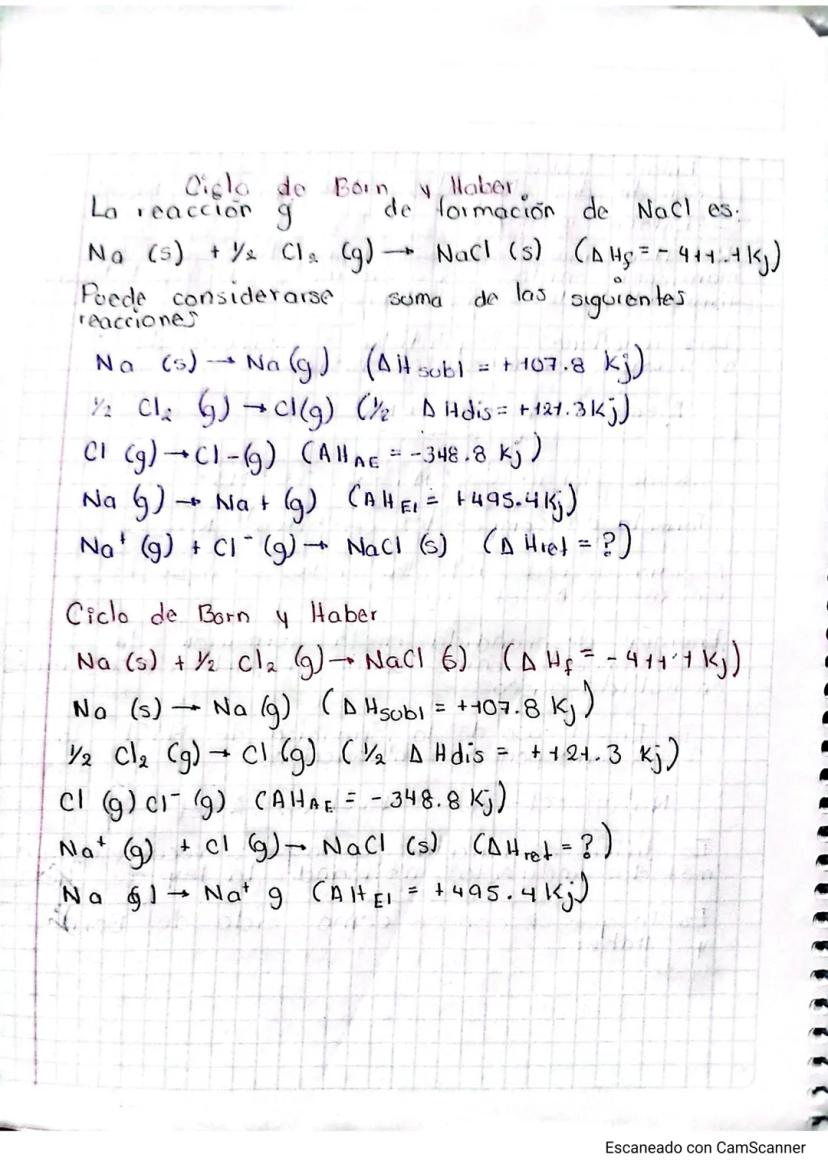 Ciclo de Born y Haber
La reacción g de formación de NaCl es:
Na (s) + 1/2 Cl₂ (g) → NaCl (s) (ΔHf = - 411.1 Kj)
Puede considerarse suma de las siguientes
reacciones
Na (s) → Na (g) (ΔH subl = +107.8 Kj)
1/2 Cl₂ (g) → Cl(g) (1/2 ΔHdis = +121.3Kj)
Cl (g) → Cl-(g) (ΔH AE = -348.8 Kj)
Na (g) → Na+ (g) (ΔH EI = +495.4Kj)
Na⁺ (g) + Cl⁻ (g) → NaCl (s) (ΔHret = ?)
Ciclo de Born y Haber
Na (s) + 1/2 Cl₂ (g) → NaCl (s) (ΔHf = - 411.1 Kj)
Na (s) → Na (g) (ΔHsubl = +107.8 Kj)
1/2 Cl₂ (g) → Cl (g) (1/2 ΔHdis = +121.3 Kj)
Cl (g) Cl⁻ (g) (ΔH AE = -348.8 Kj)
Na⁺ (g) + Cl (g) → NaCl (s) (ΔHret = ?)
Na (g) → Na⁺ g (ΔH EI = +495.4 Kj)
Escaneado con CamScanner